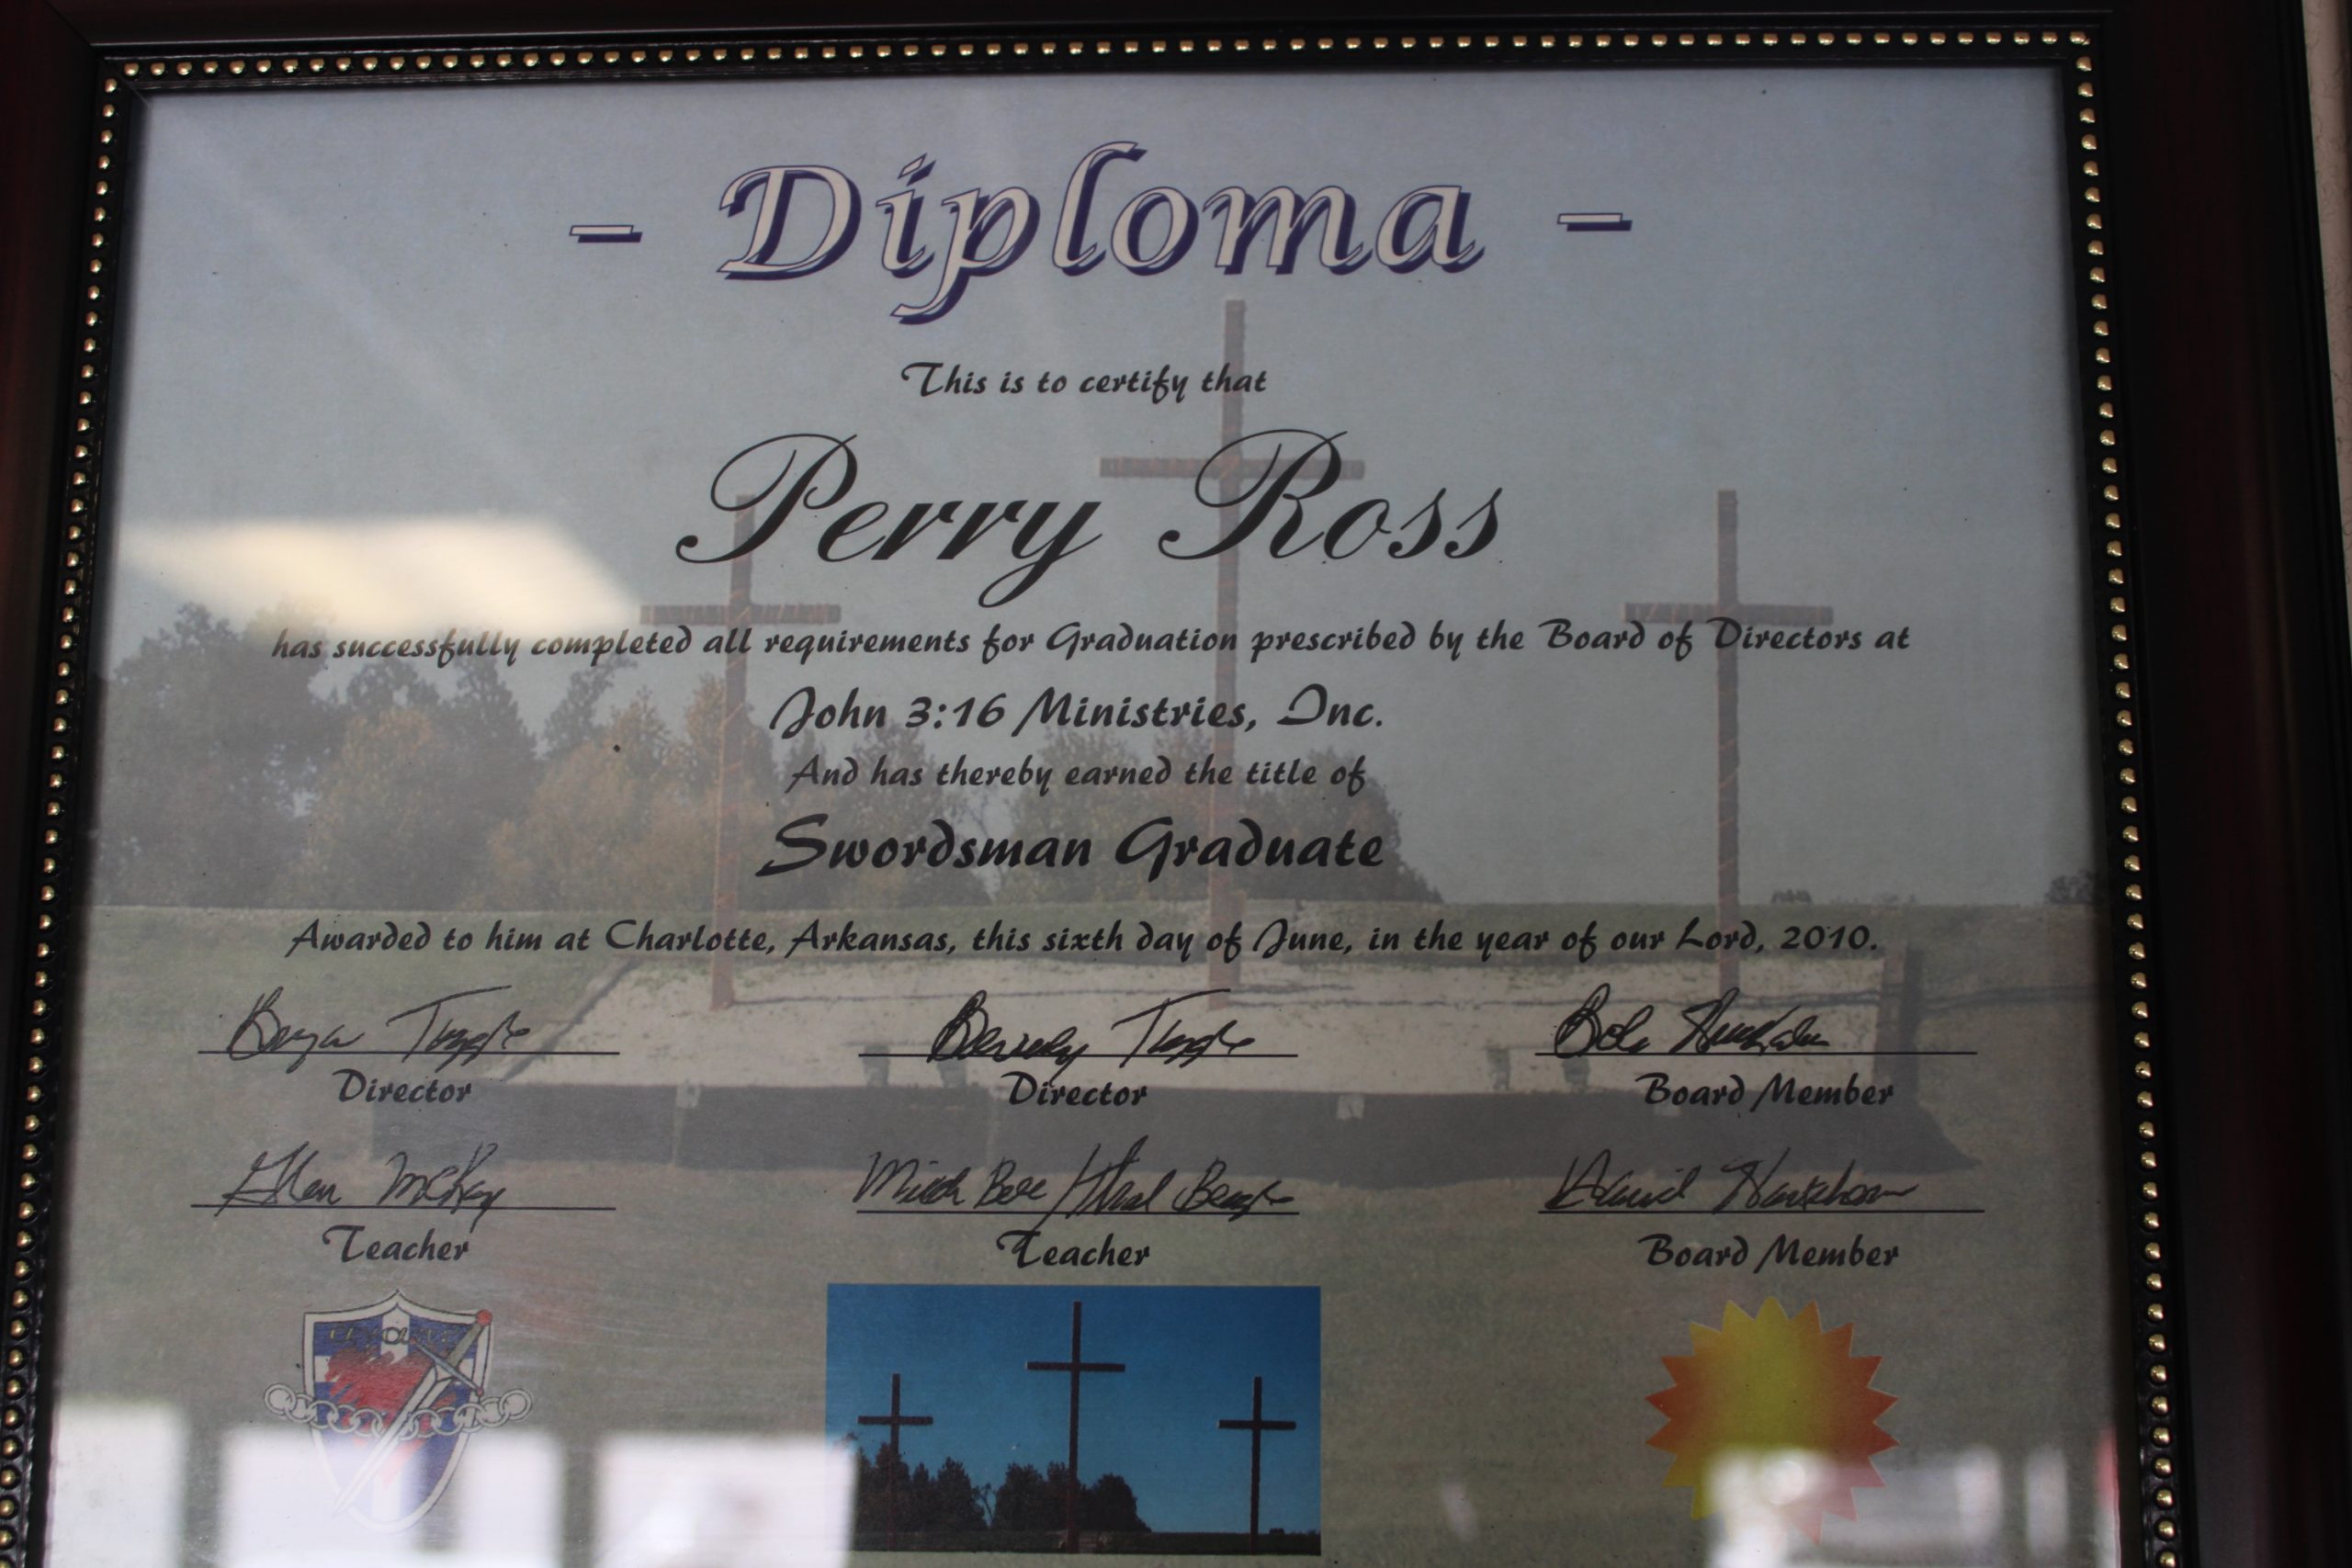 - Diploma -
This is to certify that
Perry Ross
has successfully completed all requirements for Graduation prescribed by the Board of Directors at
John 3:16 Ministries, Inc.
And has thereby earned the title of
Swordsman Graduate
Awarded to him at Charlotte, Arkansas, this sixth day of June, in the year of our Lord, 2010.
Bryan Tuggle Beverly Tuggle Bob
Director Director Board Member
McKay Mitch David
Teacher Teacher Board Member